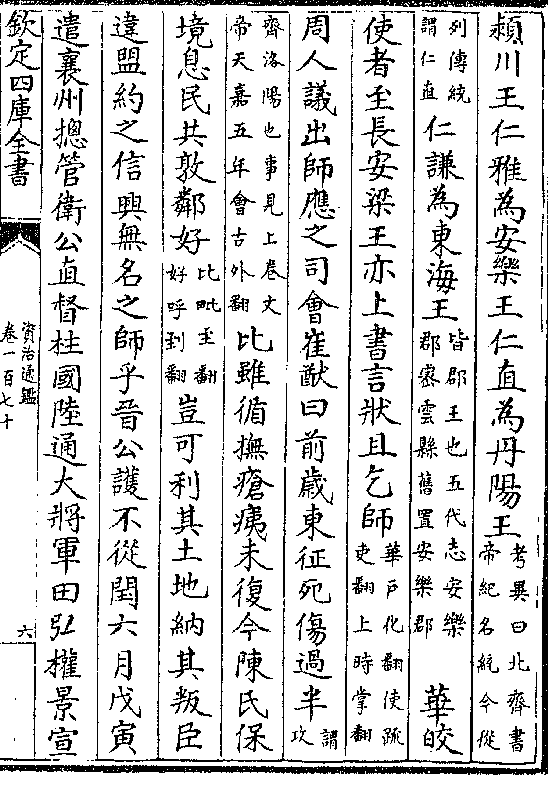 潁川王仁雅為安樂王仁直為丹陽王考異曰北齊書帝紀名統今從
列傳統謂仁直仁謙為東海王皆郡王也五代志安樂郡密雲縣舊置安樂郡華皎
使者至長安梁王亦上書言狀且乞師華戶化翻使疏吏翻上時掌翻
周人議出師應之司會崔猷曰前歲東征死傷過半謂攻
齊洛陽也事見上卷文帝天嘉五年會古外翻比雖循撫瘡痍未復今陳氏保
境息民共敦鄰好比毗至翻好呼到翻豈可利其土地納其叛臣
違盟約之信興無名之師乎晉公護不從閏六月戊寅
遣襄州摠管衛公直督柱國陸通大將軍田弘權景宣
欽定四庫全書
資治通鑑
卷一百七十
六